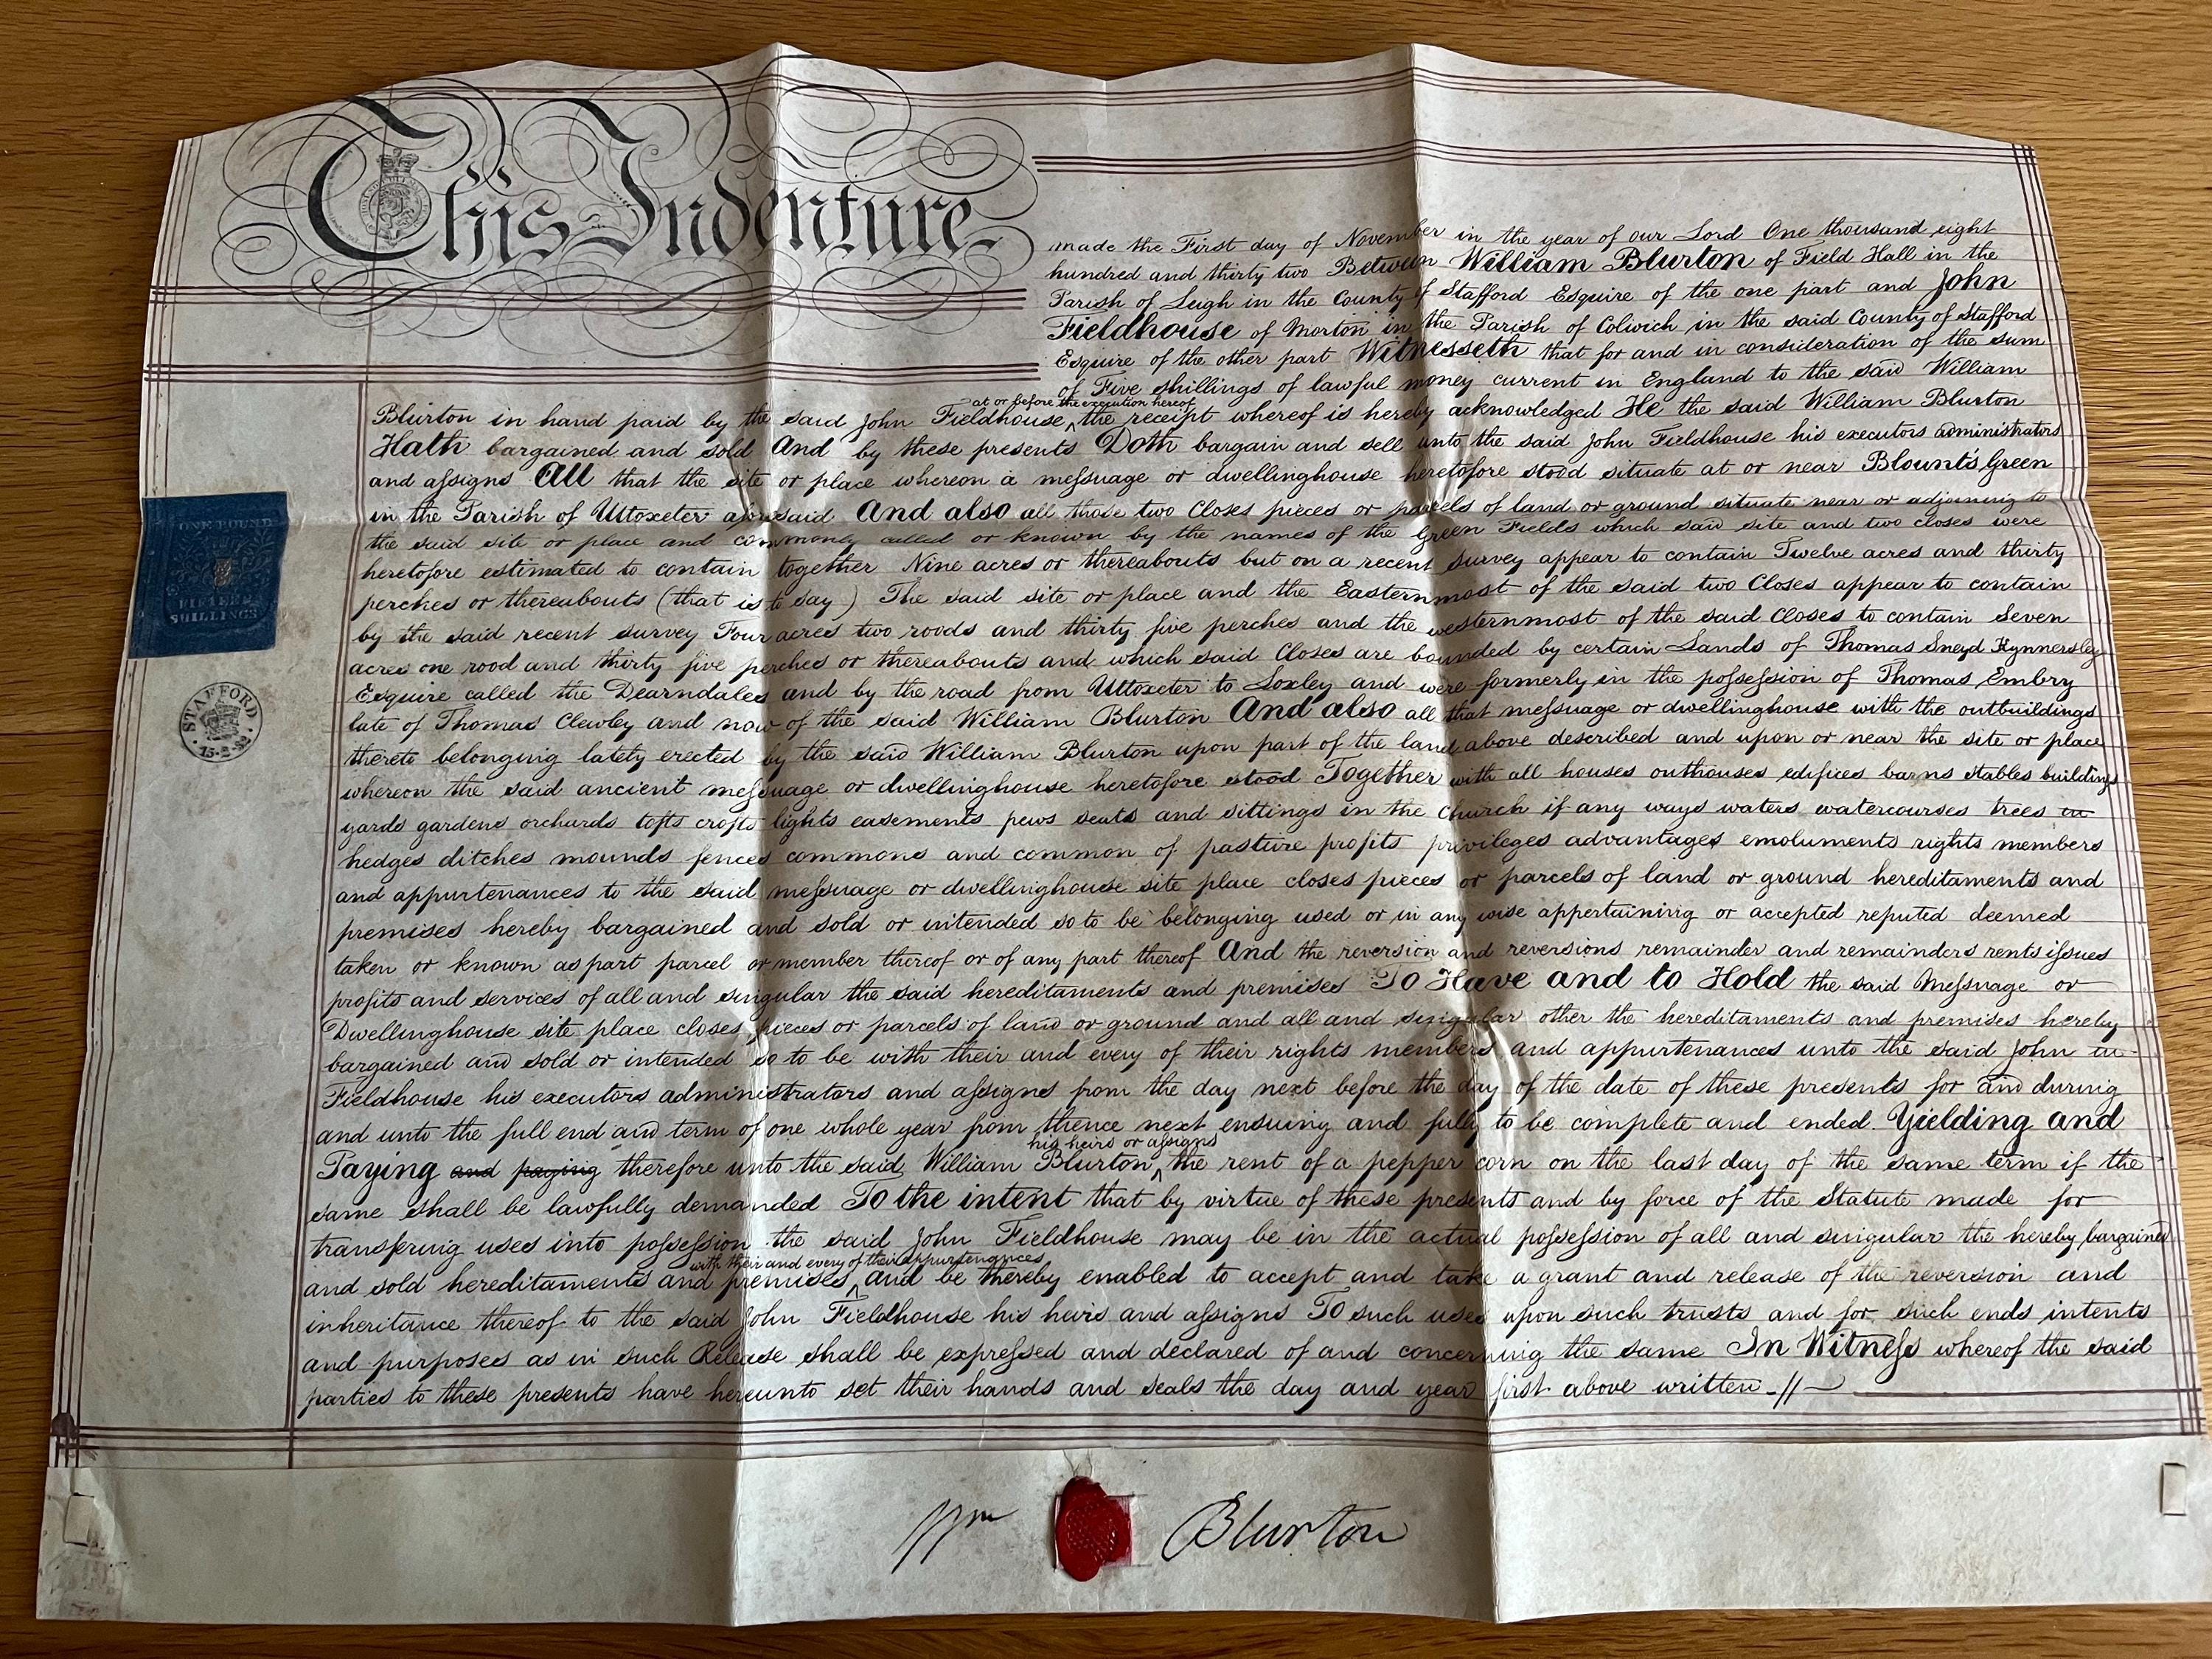 This Indenture
made the First day of November in the year of our Lord One thousand eight
hundred and thirty two Between William Blurton of Field Hall in the
Parish of Leigh in the County of Stafford Esquire of the one part and John
Fieldhouse of Morton in the Parish of Colwich in the said County of Stafford
Esquire of the other part Witnesseth that for and in consideration of the sum
of Five shillings of lawful money current in England to the said William
at or before the execution hereof
Blurton in hand paid by the said John Fieldhouse ^ the receipt whereof is hereby acknowledged He the said William Blurton
Hath bargained and sold And by these presents Doth bargain and sell unto the said John Fieldhouse his executors administrators
and assigns All that the site or place whereon a messuage or dwellinghouse heretofore stood situate at or near Blount's Green
in the Parish of Uttoxeter aforesaid And also all those two Closes pieces or parcels of land or ground situate near or adjoining to
the said site or place and commonly called or known by the names of the Green Fields which said site and two closes were
heretofore estimated to contain together Nine acres or thereabouts but on a recent survey appear to contain Twelve acres and thirty
perches or thereabouts (that is to say) The said site or place and the Easternmost of the said two Closes appear to contain
by the said recent survey Four acres two roods and thirty five perches and the westernmost of the said Closes to contain Seven
acres one rood and thirty five perches or thereabouts and which said Closes are bounded by certain Lands of Thomas Sneyd Kynnersley
Esquire called the Dearndales and by the road from Uttoxeter to Loxley and were formerly in the possession of Thomas Embry
late of Thomas Clewley and now of the said William Blurton And also all that messuage or dwellinghouse with the outbuildings
thereto belonging lately erected by the said William Blurton upon part of the land above described and upon or near the site or place
whereon the said ancient messuage or dwellinghouse heretofore stood Together with all houses outhouses edifices barns stables buildings
yards gardens orchards tofts crofts lights easements pews seats and sittings in the Church if any ways waters watercourses trees
hedges ditches mounds fences commons and common of pasture profits privileges advantages emoluments rights members
and appurtenances to the said messuage or dwellinghouse site place closes pieces or parcels of land or ground hereditaments and
premises hereby bargained and sold or intended so to be belonging used or in any wise appertaining or accepted reputed deemed
taken or known as part parcel or member thereof or of any part thereof And the reversion and reversions remainder and remainders rents issues
profits and services of all and singular the said hereditaments and premises To Have and to Hold the said Messuage or
Dwellinghouse site place closes pieces or parcels of land or ground and all and singular other the hereditaments and premises hereby
bargained and sold or intended so to be with their and every of their rights members and appurtenances unto the said John
Fieldhouse his executors administrators and assigns from the day next before the day of the date of these presents for and during
and unto the full end and term of one whole year from thence next ensuing and fully to be complete and ended Yielding and
his heirs or assigns
Paying and paying therefore unto the said William Blurton ^ the rent of a pepper corn on the last day of the same term if the
same shall be lawfully demanded To the intent that by virtue of these presents and by force of the Statute made for
transferring uses into possession the said John Fieldhouse may be in the actual possession of all and singular the hereby bargained
with their and every of their appurtenances
and sold hereditaments and premises ^ and be thereby enabled to accept and take a grant and release of the reversion and
inheritance thereof to the said John Fieldhouse his heirs and assigns To such uses upon such trusts and for such ends intents
and purposes as in such Release shall be expressed and declared of and concerning the same In Witness whereof the said
parties to these presents have hereunto set their hands and seals the day and year first above written
ONE POUND
FIFTEEN
SHILLINGS
STAFFORD
Wm Blurton